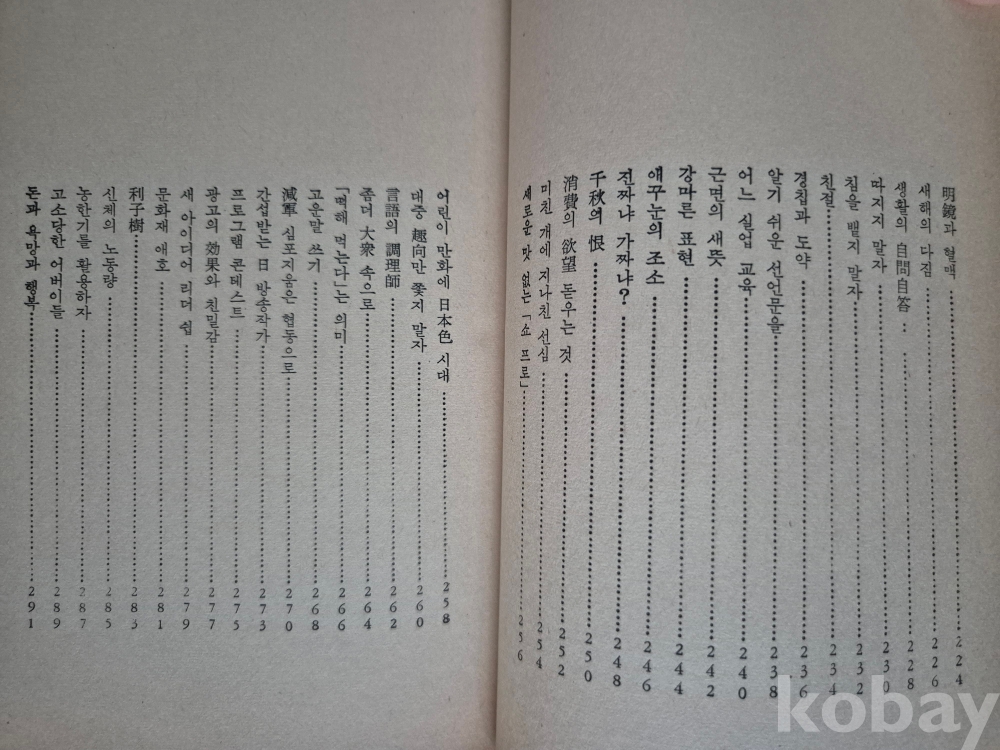 明鏡과 혈맥 224
새해의 다짐 226
생활의 自問自答 228
따지지 말자 230
침을 뱉지 말자 232
친절 234
경칩과 도약 236
알기 쉬운 선언문을 238
어느 실업 교육 240
근면의 새뜻 242
강마른 표현 244
애꾸눈의 조소 246
전짜냐 가짜냐? 248
千秋의 恨 250
消費의 欲望 돋우는 것 252
미친 개에 지나친 선심 254
새로운 맛 없는 「쇼 프로」 256
어린이 만화에 日本色 시대 258
대중 趣向만 쫓지 말자 260
言語의 調理師 262
좀더 大衆 속으로 264
「떡해 먹는다」는 의미 266
고운말 쓰기 268
減軍 심포지움은 협동으로 270
간섭받는 日 방송작가 273
프로그램 콘테스트 275
광고의 効果와 친밀감 277
새 아이디어 리더 쉽 279
문화재 애호 281
利子樹 283
신체의 노동량 285
농한기를 활용하자 287
고소당한 어버이들 289
돈과 욕망과 행복 291
kobay